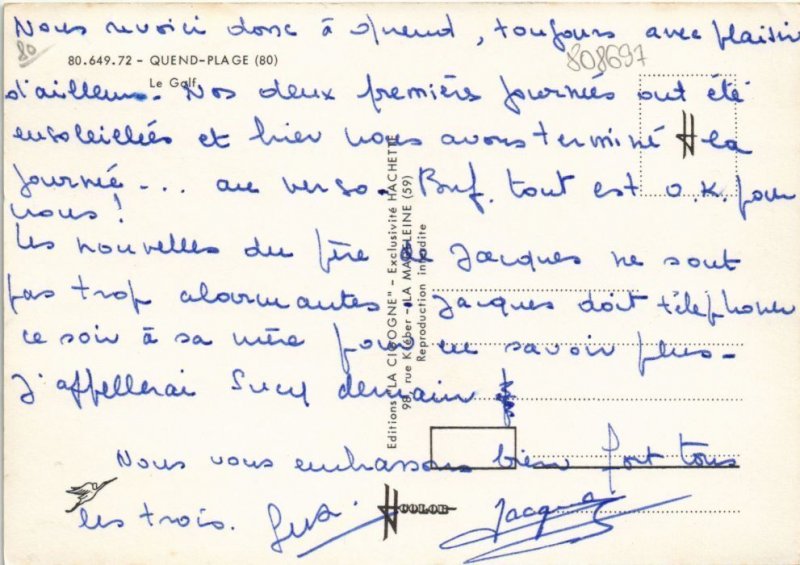 Nous revoici donc à Quend, toujours avec plaisir
80
80.649.72 - QUEND-PLAGE (80)
808697
Le Golf
d'ailleurs. Nos deux premières journées ont été
ensoleillées et hier nous avons terminé la
journée... au verso. Bref. tout est O.K. pour
nous !
Les nouvelles du père de Jacques ne sont
pas trop alarmantes. Jacques doit téléphoner
ce soir à sa mère pour en savoir plus -
J'appellerai Sucy demain
Nous vous embrassons bien fort tous
les trois.
Jacques
Editions "LA CIGOGNE" - Exclusivité HACHETTE
98, rue Kléber - LA MADELEINE (59)
Reproduction interdite
COLOR